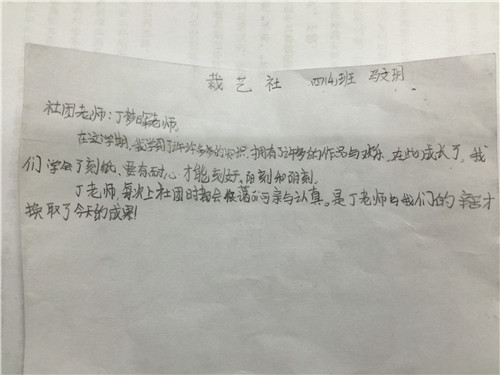 裁艺社 四(4)班 马文玥
社团老师:丁梦晖老师。
在这学期,我学到了许许多多的知识,拥有了许多的作品与欢乐,在此成长了。我
们学会了刻纸、要有耐心才能刻好、阳刻和阴刻。
丁老师,每次上社团时都会很 与认真。是丁老师与我们的 才
换取了今天的成果!